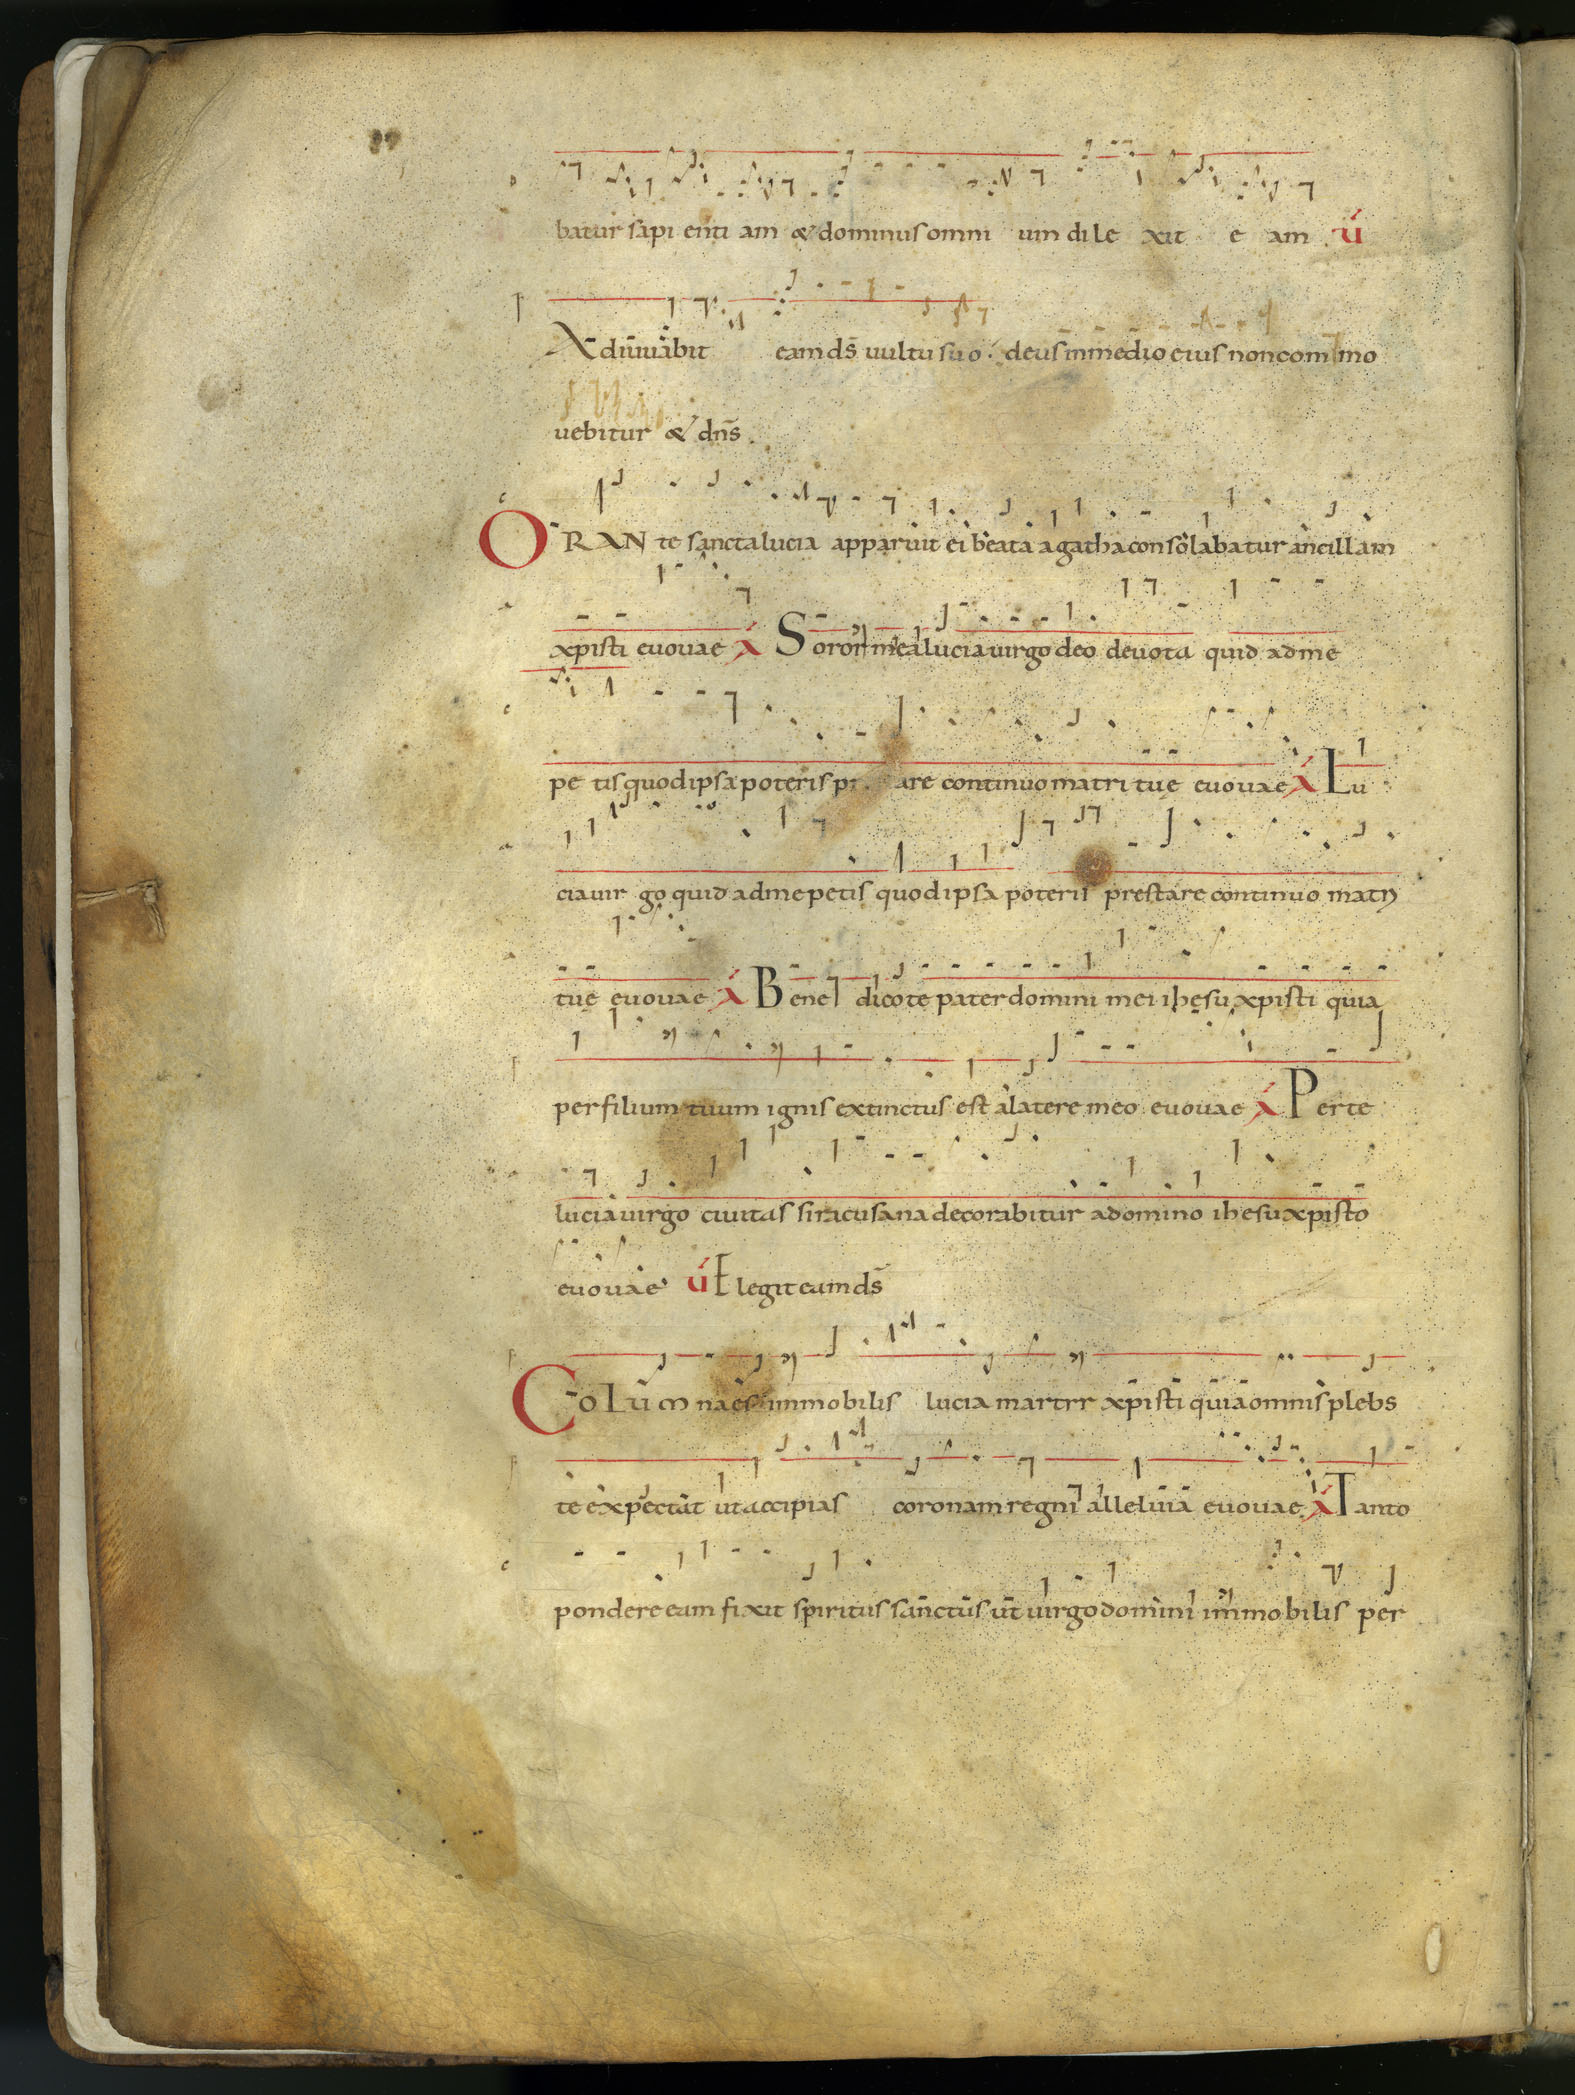 batur sapi enti am & dominus omni um dile xit e am v
Adiuuabit eam ds̄ uultu suo : deus in medio eius non com mo
uebitur & dn̄s .
ORANte sancta lucia apparuit ei beata agatha consolabatur ancillam
xpisti euouae A Soror mea lucia uirgo deo deuota quid ad me
pe tis quod ipsa poteris pr are continuo matri tuę euouae A Lu
cia uir go quid ad me petis quod ipsa poteris prestare continuo matri
tuę euouae A Bene dico te pater domini mei ihesu xpisti quia
per filium tuum ignis extinctus est a latere meo euouae A Per te
lucia uirgo ciuitas siracusana decorabitur a domino ihesu xpisto
euouae v Elegit eam ds̄
Columna es immobilis lucia martyr xpisti quia omnis plebs
te expectat ut accipias coronam regni alleluia euouae A Tanto
pondere eam fixit spiritus sanctus ut uirgo domini immobilis per